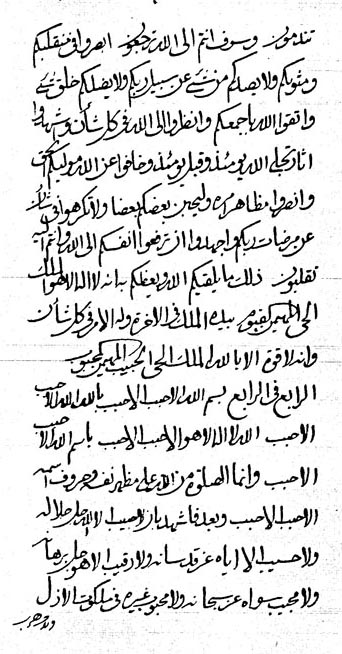 تندمون وسوف انتم الى الله ترجعون ابصروا في منقلبكم
ومثويكم ولا يصدكم من شيء عن سبيل ربكم ولا يضلكم خلق شيء
واتقوا الله باجمعكم وانظروا الى الله في كل شأن وشهدوا
اثار تجلي الله يومئذ وقبل يومئذ وخافوا عن الله موليكم الحق
وانصروا مظاهر امره وليحبن بعضكم بعضا ولا تكرهوا في شأن
عن مرضات ربكم واجهدوا ان ترفعوا انفسكم الى الله وانتم اليه
تقلبون ذلك ما يلقيكم الله ويعظكم به انه لا اله الا هو الملك
الحي المهيمن القيوم بيده الملك في الاخرة وله الامر في كل شأن
وانه لا قوة الا بالله الملك الحي الحبيب المهيمن المحبوب
الرابع في الرابع بسم الله الاحبب الاحبب بالله الله الاحبب
الاحبب الله لا اله الا هو الاحبب الاحبب باسم الله الاحبب
الاحبب وانما الصلوة من الله على مظهر نفسه وحروف اسمه
الاحبب الاحبب وبعد فاشهد بان لا حبيب الا الله جل جلاله
ولا حسيب الا اياه عز قدسانه ولا رقيب الا هو جل برهانه
ولا مجيب سواه عز سبحانه ولا محبوب غيره في ملكوت الازل